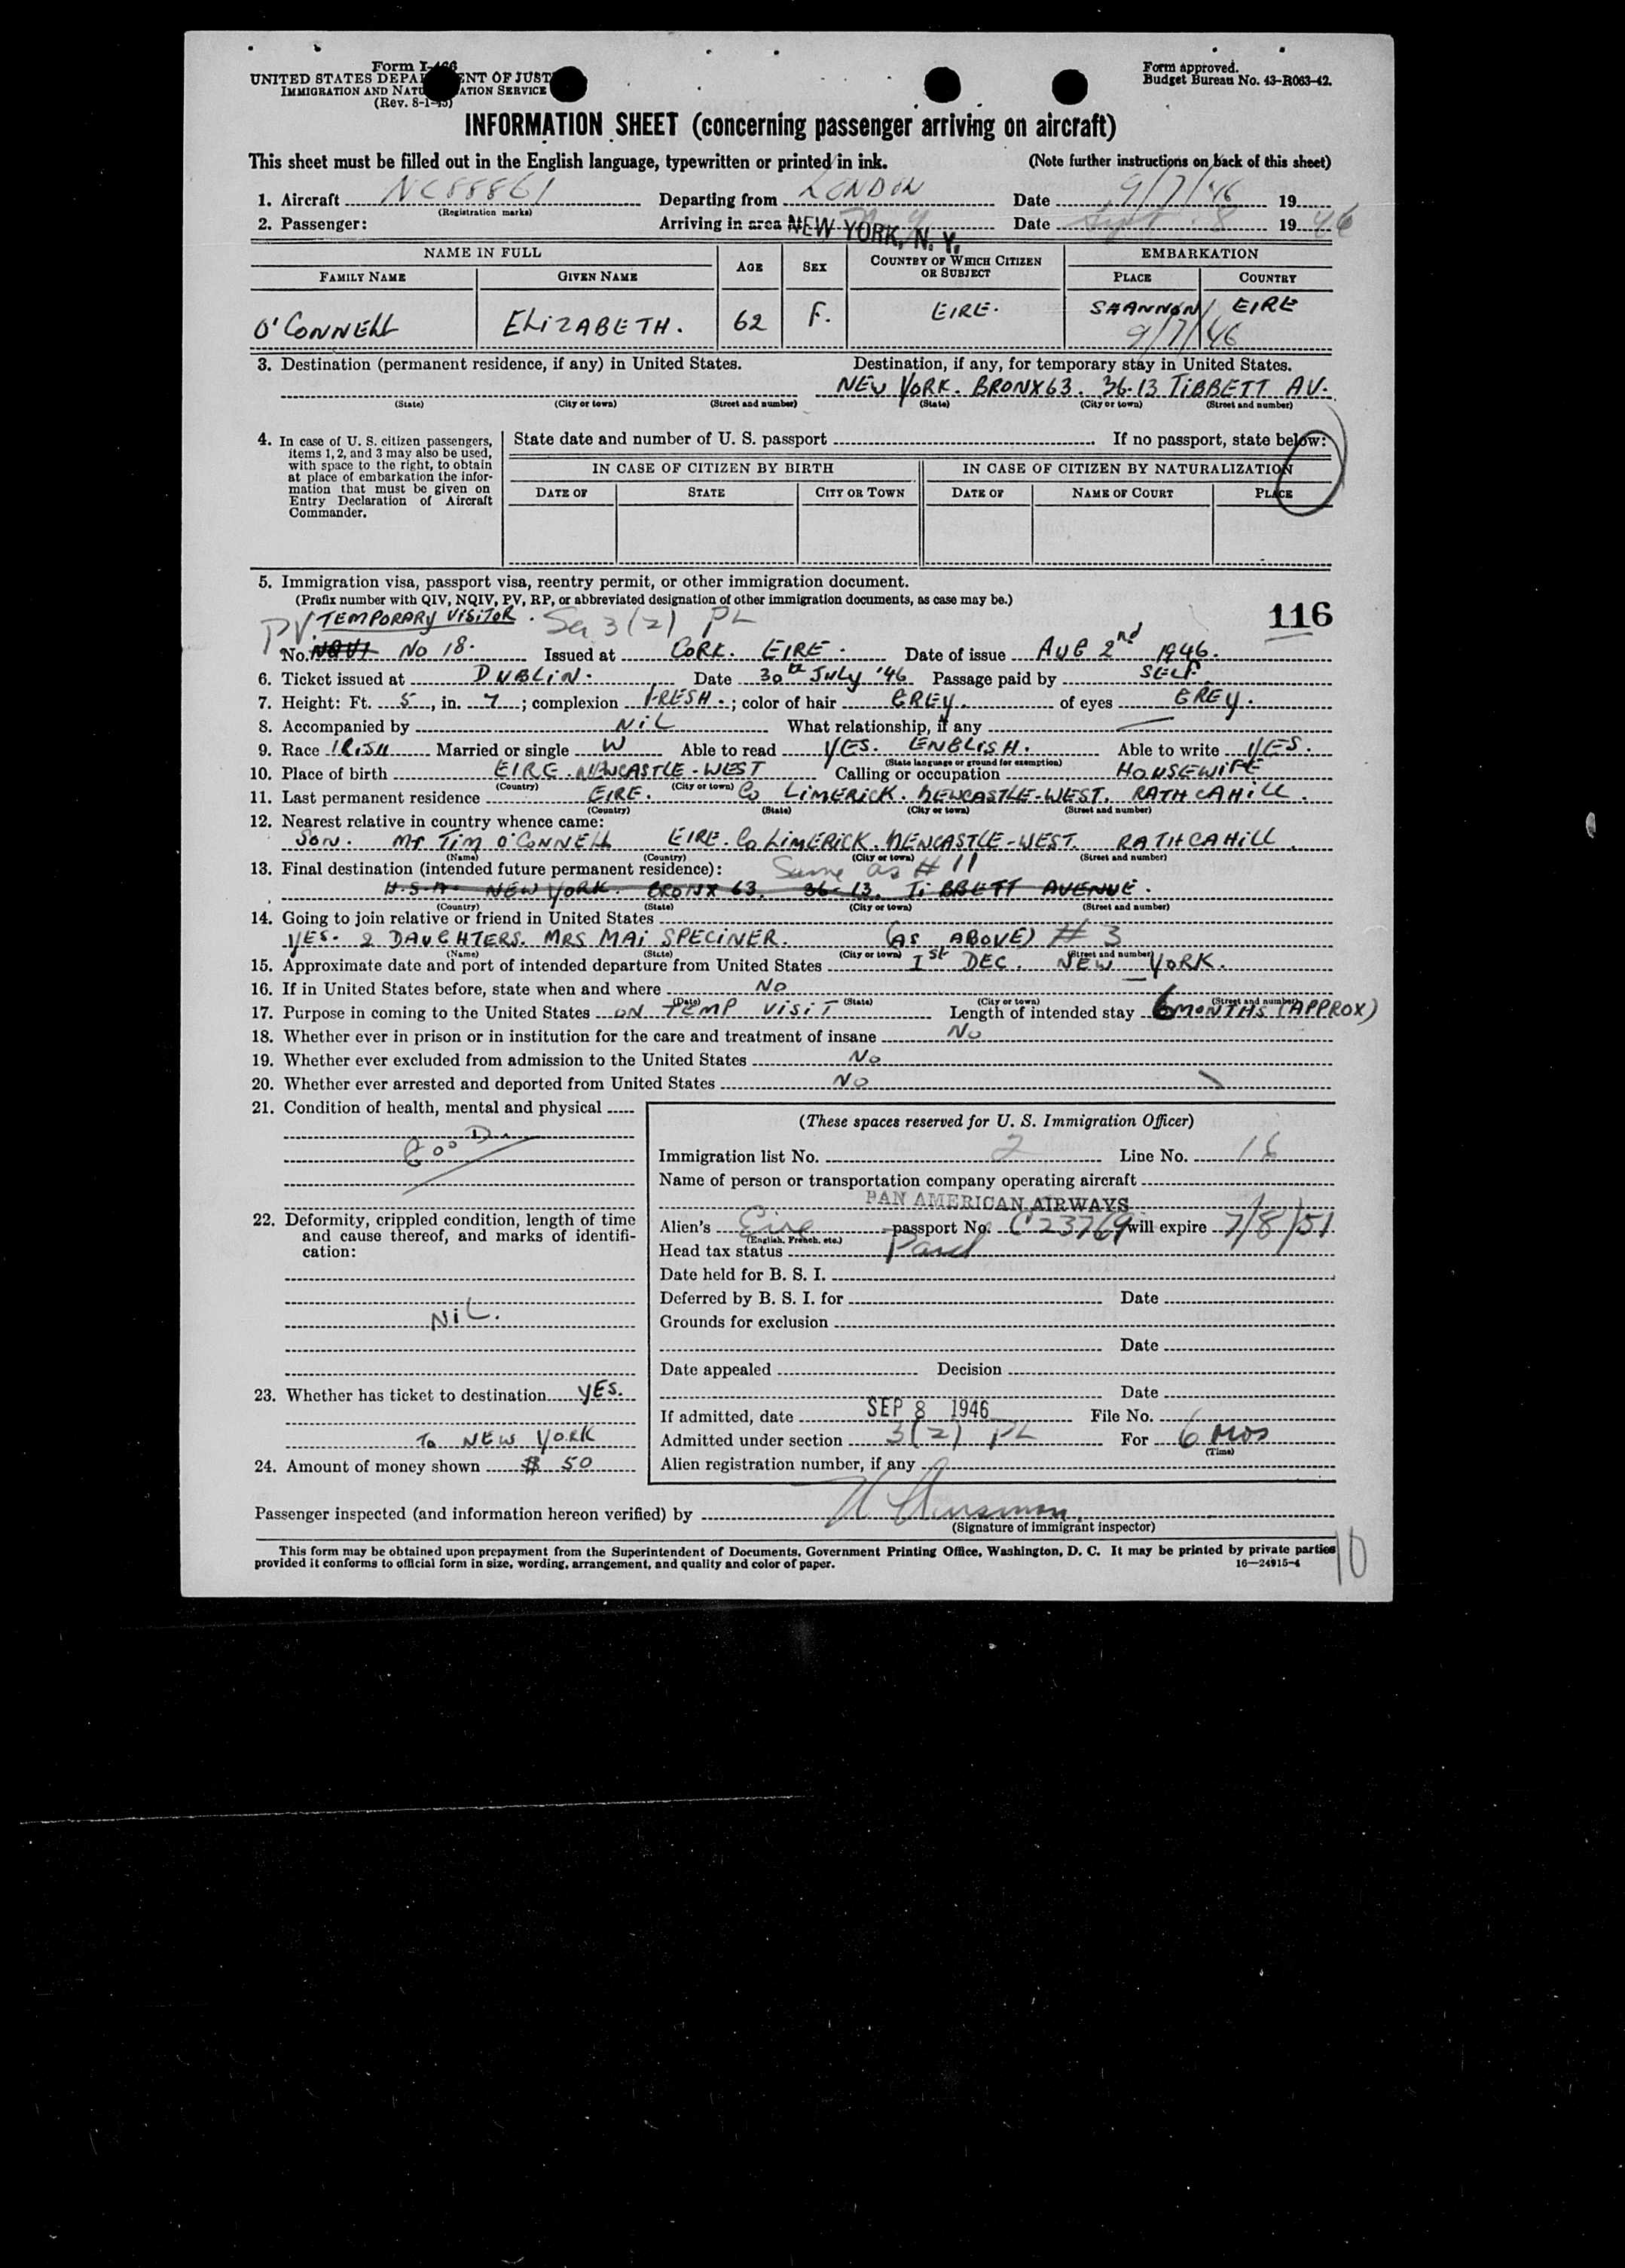 Form I-466
UNITED STATES DEPARTMENT OF JUSTICE
IMMIGRATION AND NATURALIZATION SERVICE
(Rev. 8-1-45)
Form approved.
Budget Bureau No. 43-R063-42.
INFORMATION SHEET (concerning passenger arriving on aircraft)
This sheet must be filled out in the English language, typewritten or printed in ink. (Note further instructions on back of this sheet)
1. Aircraft NC88861 Departing from LONDON Date 9/7/46 19
(Registration marks)
2. Passenger: Arriving in area at NEW YORK, N. Y. Date Sept. 8 19 46
NAME IN FULL AGE SEX COUNTRY OF WHICH CITIZEN OR SUBJECT EMBARKATION
FAMILY NAME GIVEN NAME PLACE COUNTRY
O'CONNELL ELIZABETH. 62 F. EIRE. SHANNON EIRE
9/7/46
3. Destination (permanent residence, if any) in United States. Destination, if any, for temporary stay in United States.
NEW YORK. BRONX 63. 36-13 TIBBETT AV.
(State) (City or town) (Street and number) (State) (City or town) (Street and number)
4. In case of U. S. citizen passengers, items 1, 2, and 3 may also be used, with space to the right, to obtain at place of embarkation the information that must be given on Entry Declaration of Aircraft Commander.
State date and number of U. S. passport If no passport, state below:
IN CASE OF CITIZEN BY BIRTH IN CASE OF CITIZEN BY NATURALIZATION
DATE OF STATE CITY OR TOWN DATE OF NAME OF COURT PLACE
5. Immigration visa, passport visa, reentry permit, or other immigration document.
(Prefix number with QIV, NQIV, PV, RP, or abbreviated designation of other immigration documents, as case may be.)
116
PV TEMPORARY VISITOR. Sec 3(2) PL
No. NQVI No 18. Issued at CORK. EIRE. Date of issue AUG 2nd 1946.
6. Ticket issued at DUBLIN. Date 30th JULY '46 Passage paid by SELF
7. Height: Ft. 5, in. 7; complexion FRESH.; color of hair GREY. of eyes GREY.
8. Accompanied by NIL What relationship, if any —
9. Race IRISH Married or single W Able to read YES. ENGLISH. Able to write YES.
(State language or ground for exemption)
10. Place of birth EIRE. NEWCASTLE-WEST Calling or occupation HOUSEWIFE
(Country) (City or town)
11. Last permanent residence EIRE. Co LIMERICK. NEWCASTLE-WEST. RATHCAHILL.
(Country) (State) (City or town) (Street and number)
12. Nearest relative in country whence came:
SON. Mr TIM O'CONNELL EIRE. Co LIMERICK. NEWCASTLE-WEST. RATHCAHILL.
(Name) (Country) (City or town) (Street and number)
13. Final destination (intended future permanent residence): Same as # 11
U.S.A. NEW YORK. BRONX 63. 36-13, TIBBETT AVENUE.
(Country) (State) (City or town) (Street and number)
14. Going to join relative or friend in United States
YES. 2 DAUGHTERS. MRS MAI SPECINER. (AS ABOVE) # 3
(Name) (State) (City or town) (Street and number)
15. Approximate date and port of intended departure from United States 1st DEC. NEW YORK.
16. If in United States before, state when and where NO
(Date) (State) (City or town) (Street and number)
17. Purpose in coming to the United States ON TEMP VISIT Length of intended stay 6 MONTHS (APPROX)
18. Whether ever in prison or in institution for the care and treatment of insane No
19. Whether ever excluded from admission to the United States No
20. Whether ever arrested and deported from United States No
21. Condition of health, mental and physical
GOOD.
22. Deformity, crippled condition, length of time and cause thereof, and marks of identification:
NIL.
23. Whether has ticket to destination YES.
To NEW YORK
24. Amount of money shown $ 50
(These spaces reserved for U. S. Immigration Officer)
Immigration list No. 2 Line No. 16
Name of person or transportation company operating aircraft
PAN AMERICAN AIRWAYS
Alien's Eire passport No. C23769 will expire 7/8/51
(English, French, etc.)
Head tax status Paid
Date held for B. S. I.
Deferred by B. S. I. for Date
Grounds for exclusion
Date
Date appealed Decision
Date
If admitted, date SEP 8 1946 File No.
Admitted under section 3(2) PL For 6 mos
(Time)
Alien registration number, if any
Passenger inspected (and information hereon verified) by
(Signature of immigrant inspector)
This form may be obtained upon prepayment from the Superintendent of Documents, Government Printing Office, Washington, D. C. It may be printed by private parties
provided it conforms to official form in size, wording, arrangement, and quality and color of paper. 16—24915-4
10